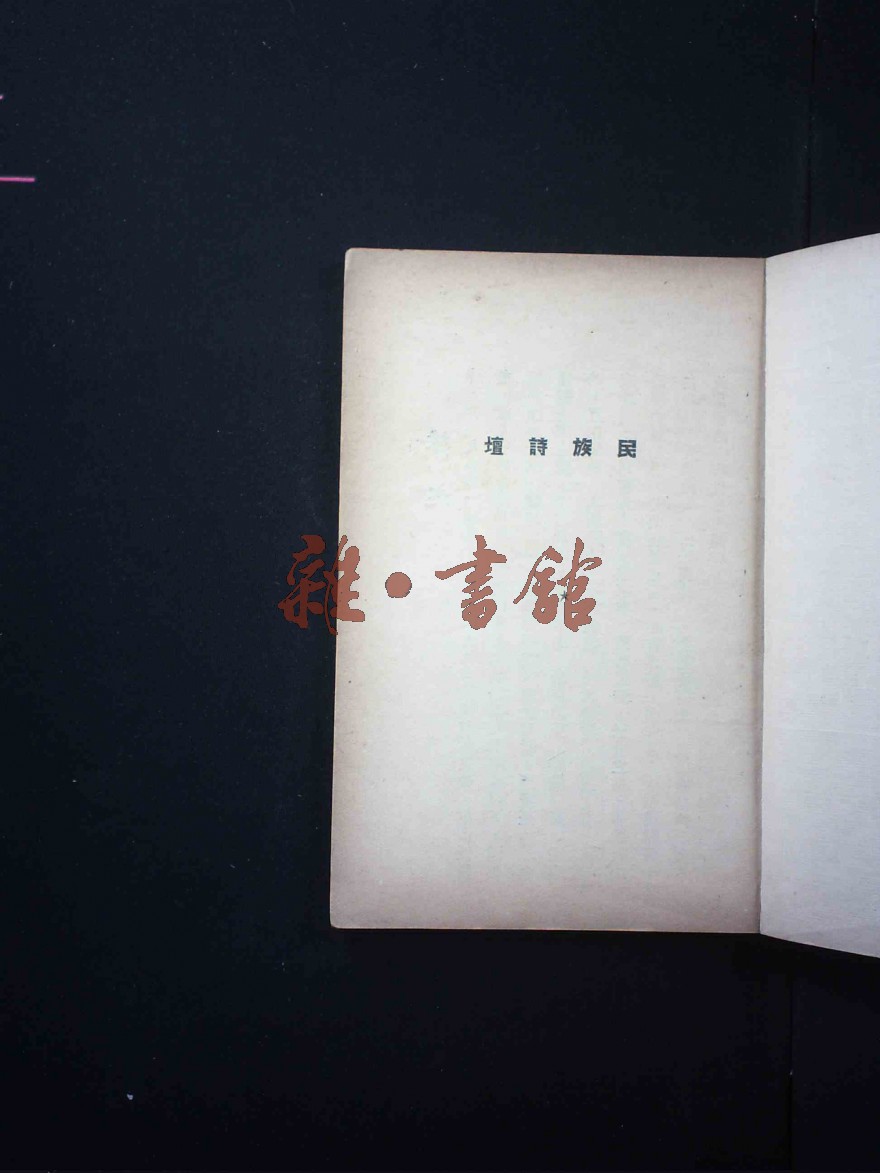 民族詩壇
雜·書館